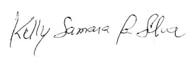 Kelly Samara P Silva